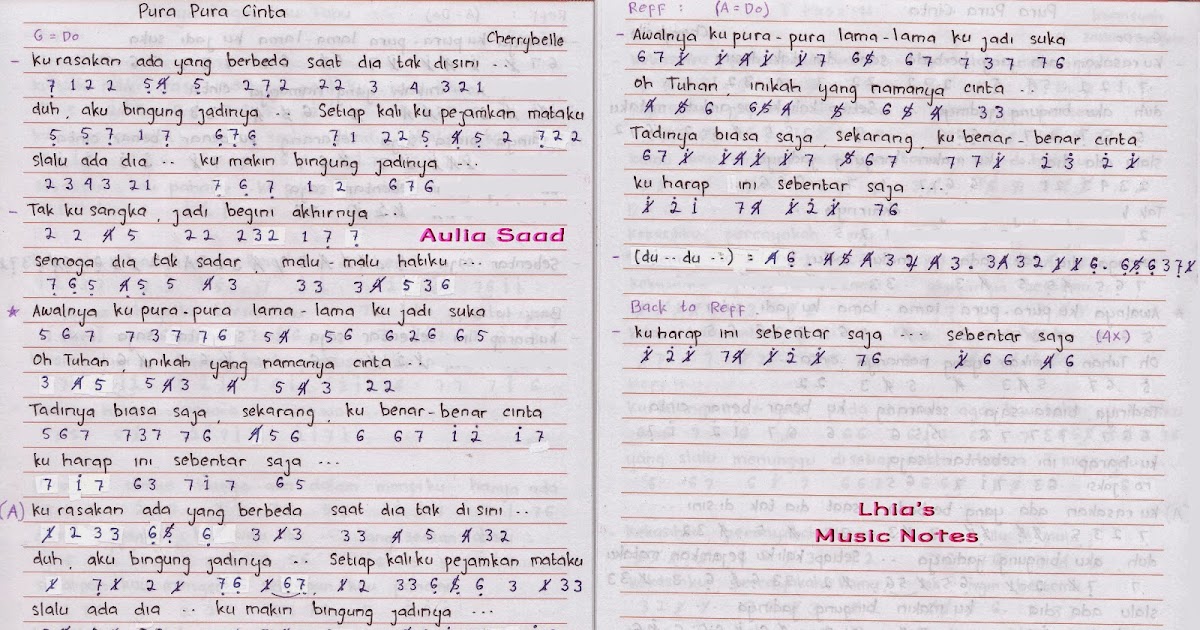 Pura Pura Cinta
G = Do
Cherrybelle
- ku rasakan ada yang berbeda saat dia tak disini ..
7 1 2 2 5 4 5 2 7 2 2 2 3 4 3 2 1
duh, aku bingung jadinya .. Setiap kali ku pejamkan mataku
5 5 7 1 7 6 7 6 7 1 2 2 5 4 5 2 7 2 2
slalu ada dia .. ku makin bingung jadinya ...
2 3 4 3 2 1 7 6 7 1 2 6 7 6
- Tak ku sangka, jadi begini akhirnya ..
2 2 4 5 2 2 2 3 2 1 7 7
Aulia Saad
semoga dia tak sadar malu malu hatiku ...
7 6 5 4 5 5 4 3 3 3 3 4 5 3 6
* Awalnya ku pura-pura lama-lama ku jadi suka
5 6 7 7 3 7 7 6 5 4 5 6 6 2 6 6 5
Oh Tuhan, inikah yang namanya cinta ..
3 4 5 5 4 3 4 5 4 3 2 2
Tadinya biasa saja, sekarang, ku benar-benar cinta
5 6 7 7 3 7 7 6 4 5 6 6 6 7 1 2 1 7
ku harap ini sebentar saja ...
7 1 7 6 3 7 1 7 6 5
(A) ku rasakan ada yang berbeda saat dia tak di sini ..
1 2 3 3 6 5 6 3 1 3 3 3 4 5 4 3 2
duh, aku bingung jadinya .. Setiap kali ku pejamkan mataku
1 7 1 2 1 7 6 1 6 7 1 2 3 3 6 5 6 3 1 3 3
slalu ada dia .. ku makin bingung jadinya ...
Reff : (A = Do)
- Awalnya ku pura-pura lama-lama ku jadi suka
6 7 1 1 4 1 1 7 6 5 6 7 7 3 7 7 6
oh Tuhan, inikah yang namanya cinta ..
4 5 6 6 5 4 5 6 5 4 3 3
Tadinya biasa saja, sekarang, ku benar-benar cinta
6 7 1 1 4 1 1 7 5 6 7 7 7 1 1 2 3 2 1
ku harap ini sebentar saja ...
1 2 1 7 4 1 2 1 7 6
- (du .. du ..) = 4 6 . 4 5 4 3 2 4 3 . 3 4 3 2 1 1 6 . 6 5 6 3 7 1
Back to Reff
- ku harap ini sebentar saja ... sebentar saja (4x)
1 2 1 7 4 1 2 1 7 6 1 6 6 4 6
Lhia's
Music Notes